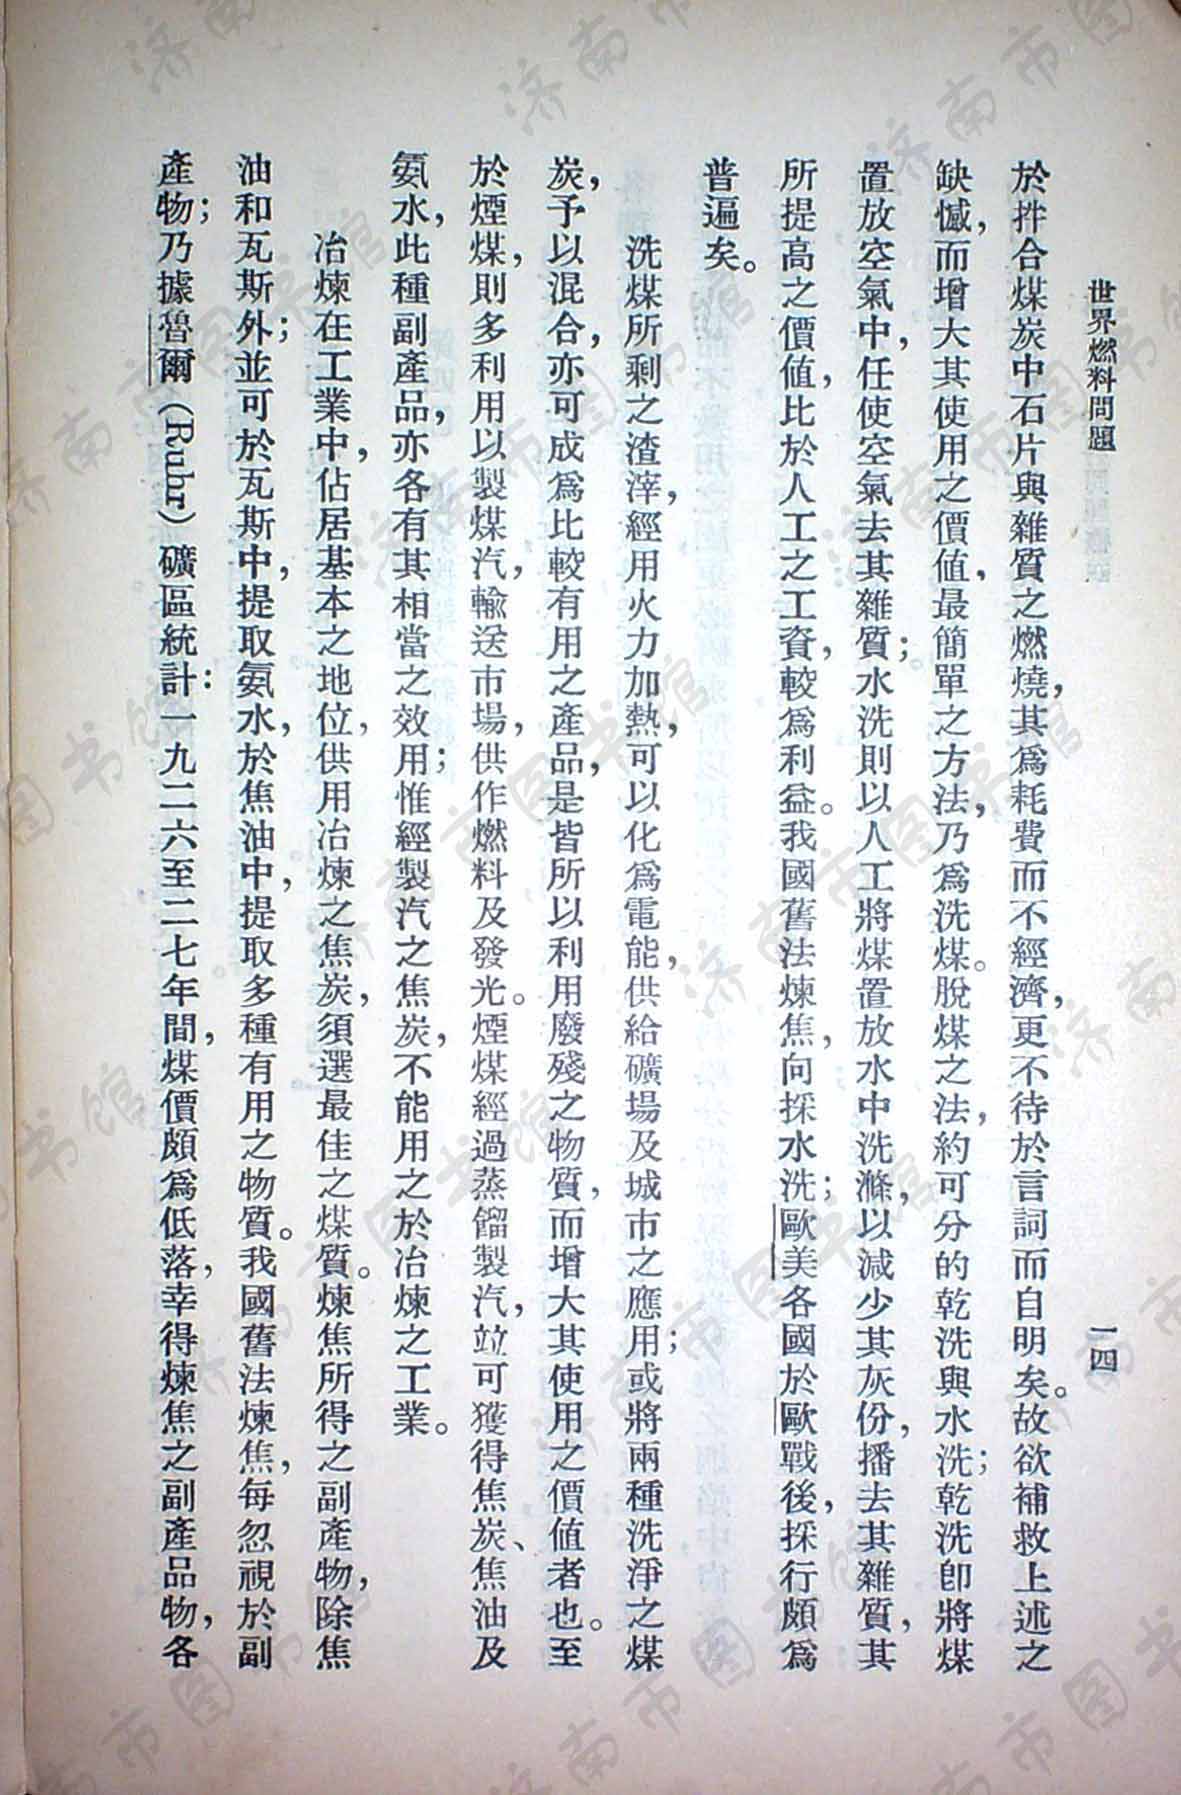 世界燃料問題
一四
於拌合煤炭中石片與雜質之燃燒，其爲耗費而不經濟，更不待於言詞而自明矣。故欲補救上述之
缺憾，而增大其使用之價值，最簡單之方法，乃爲洗煤。脫煤之法，約可分的乾洗與水洗；乾洗卽將煤
置放空氣中，任使空氣去其雜質；水洗則以人工將煤置放水中洗滌，以減少其灰份，播去其雜質，其
所提高之價值，比於人工之工資，較爲利益。我國舊法煉焦，向採水洗；歐美各國於歐戰後，採行頗爲
普遍矣。
洗煤所剩之渣滓，經用火力加熱，可以化爲電能，供給礦場及城市之應用；或將兩種洗淨之煤
炭，予以混合，亦可成爲比較有用之產品，是皆所以利用廢殘之物質，而增大其使用之價值者也。至
於煙煤，則多利用以製煤汽，輸送市場，供作燃料及發光。煙煤經過蒸餾製汽，竝可獲得焦炭、焦油及
氨水，此種副產品，亦各有其相當之效用；惟經製汽之焦炭，不能用之於冶煉之工業。
冶煉在工業中，佔居基本之地位，供用冶煉之焦炭，須選最佳之煤質。煉焦所得之副產物，除焦
油和瓦斯外；並可於瓦斯中，提取氨水，於焦油中，提取多種有用之物質。我國舊法煉焦，每忽視於副
產物；乃據魯爾（Ruhr）礦區統計：一九二六至二七年間，煤價頗爲低落，幸得煉焦之副產品物，各
济南市图书馆